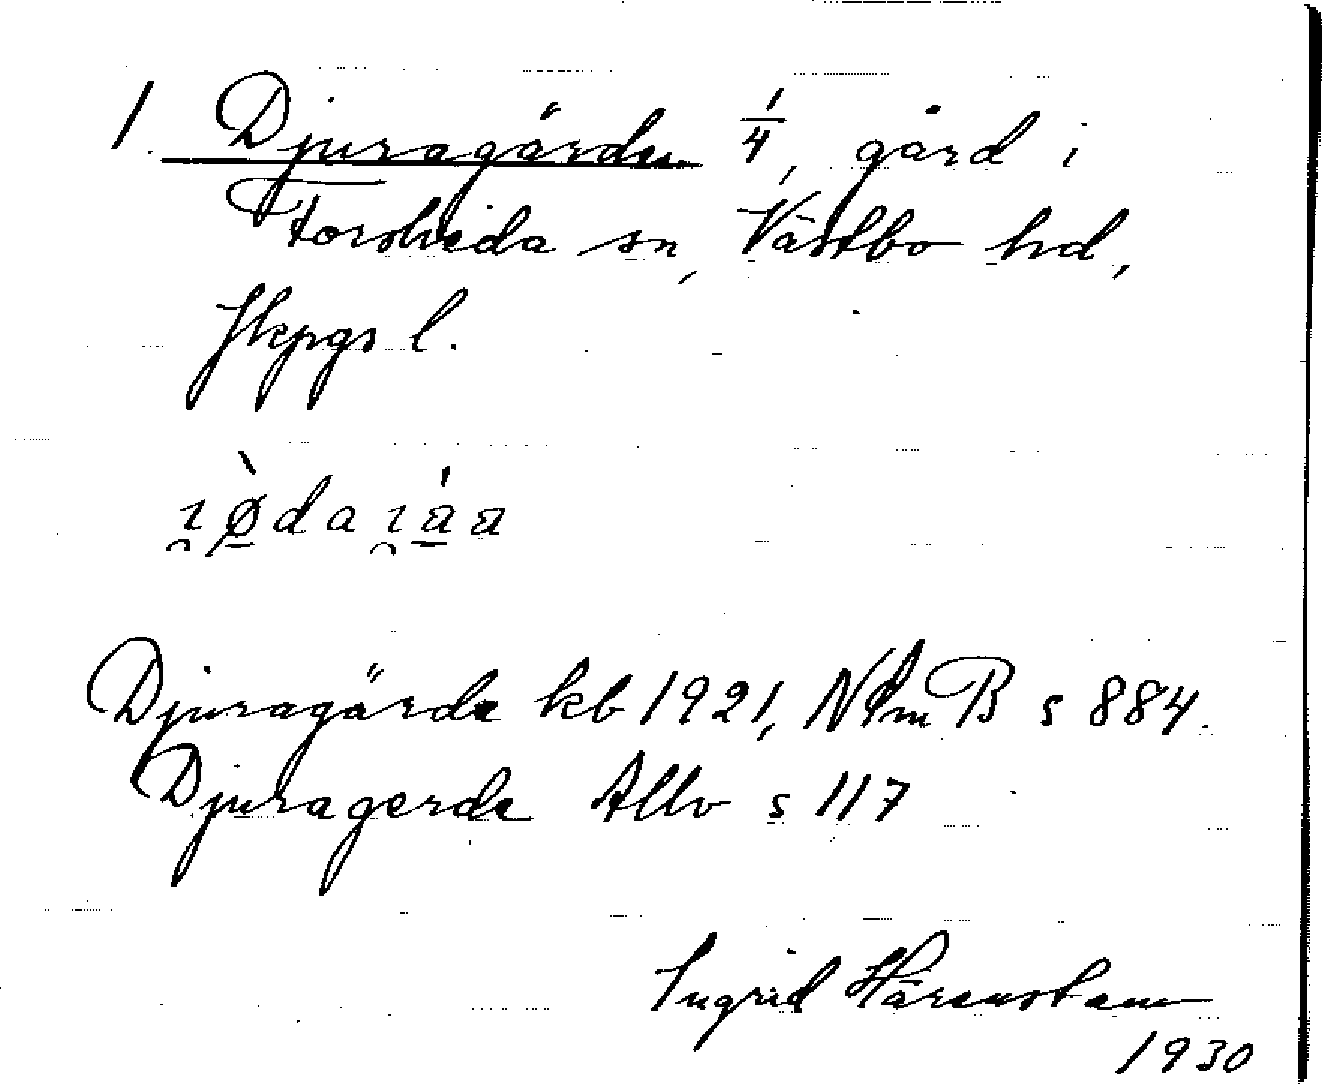 1. Djuragärde 1/4, gård i
Forsheda sn, Västbo hd,
Jkpgs l.
Djuragärde kb 1921, NamB s 884.
Djuragerde Allv s 117
Ingrid Härenstam
1930